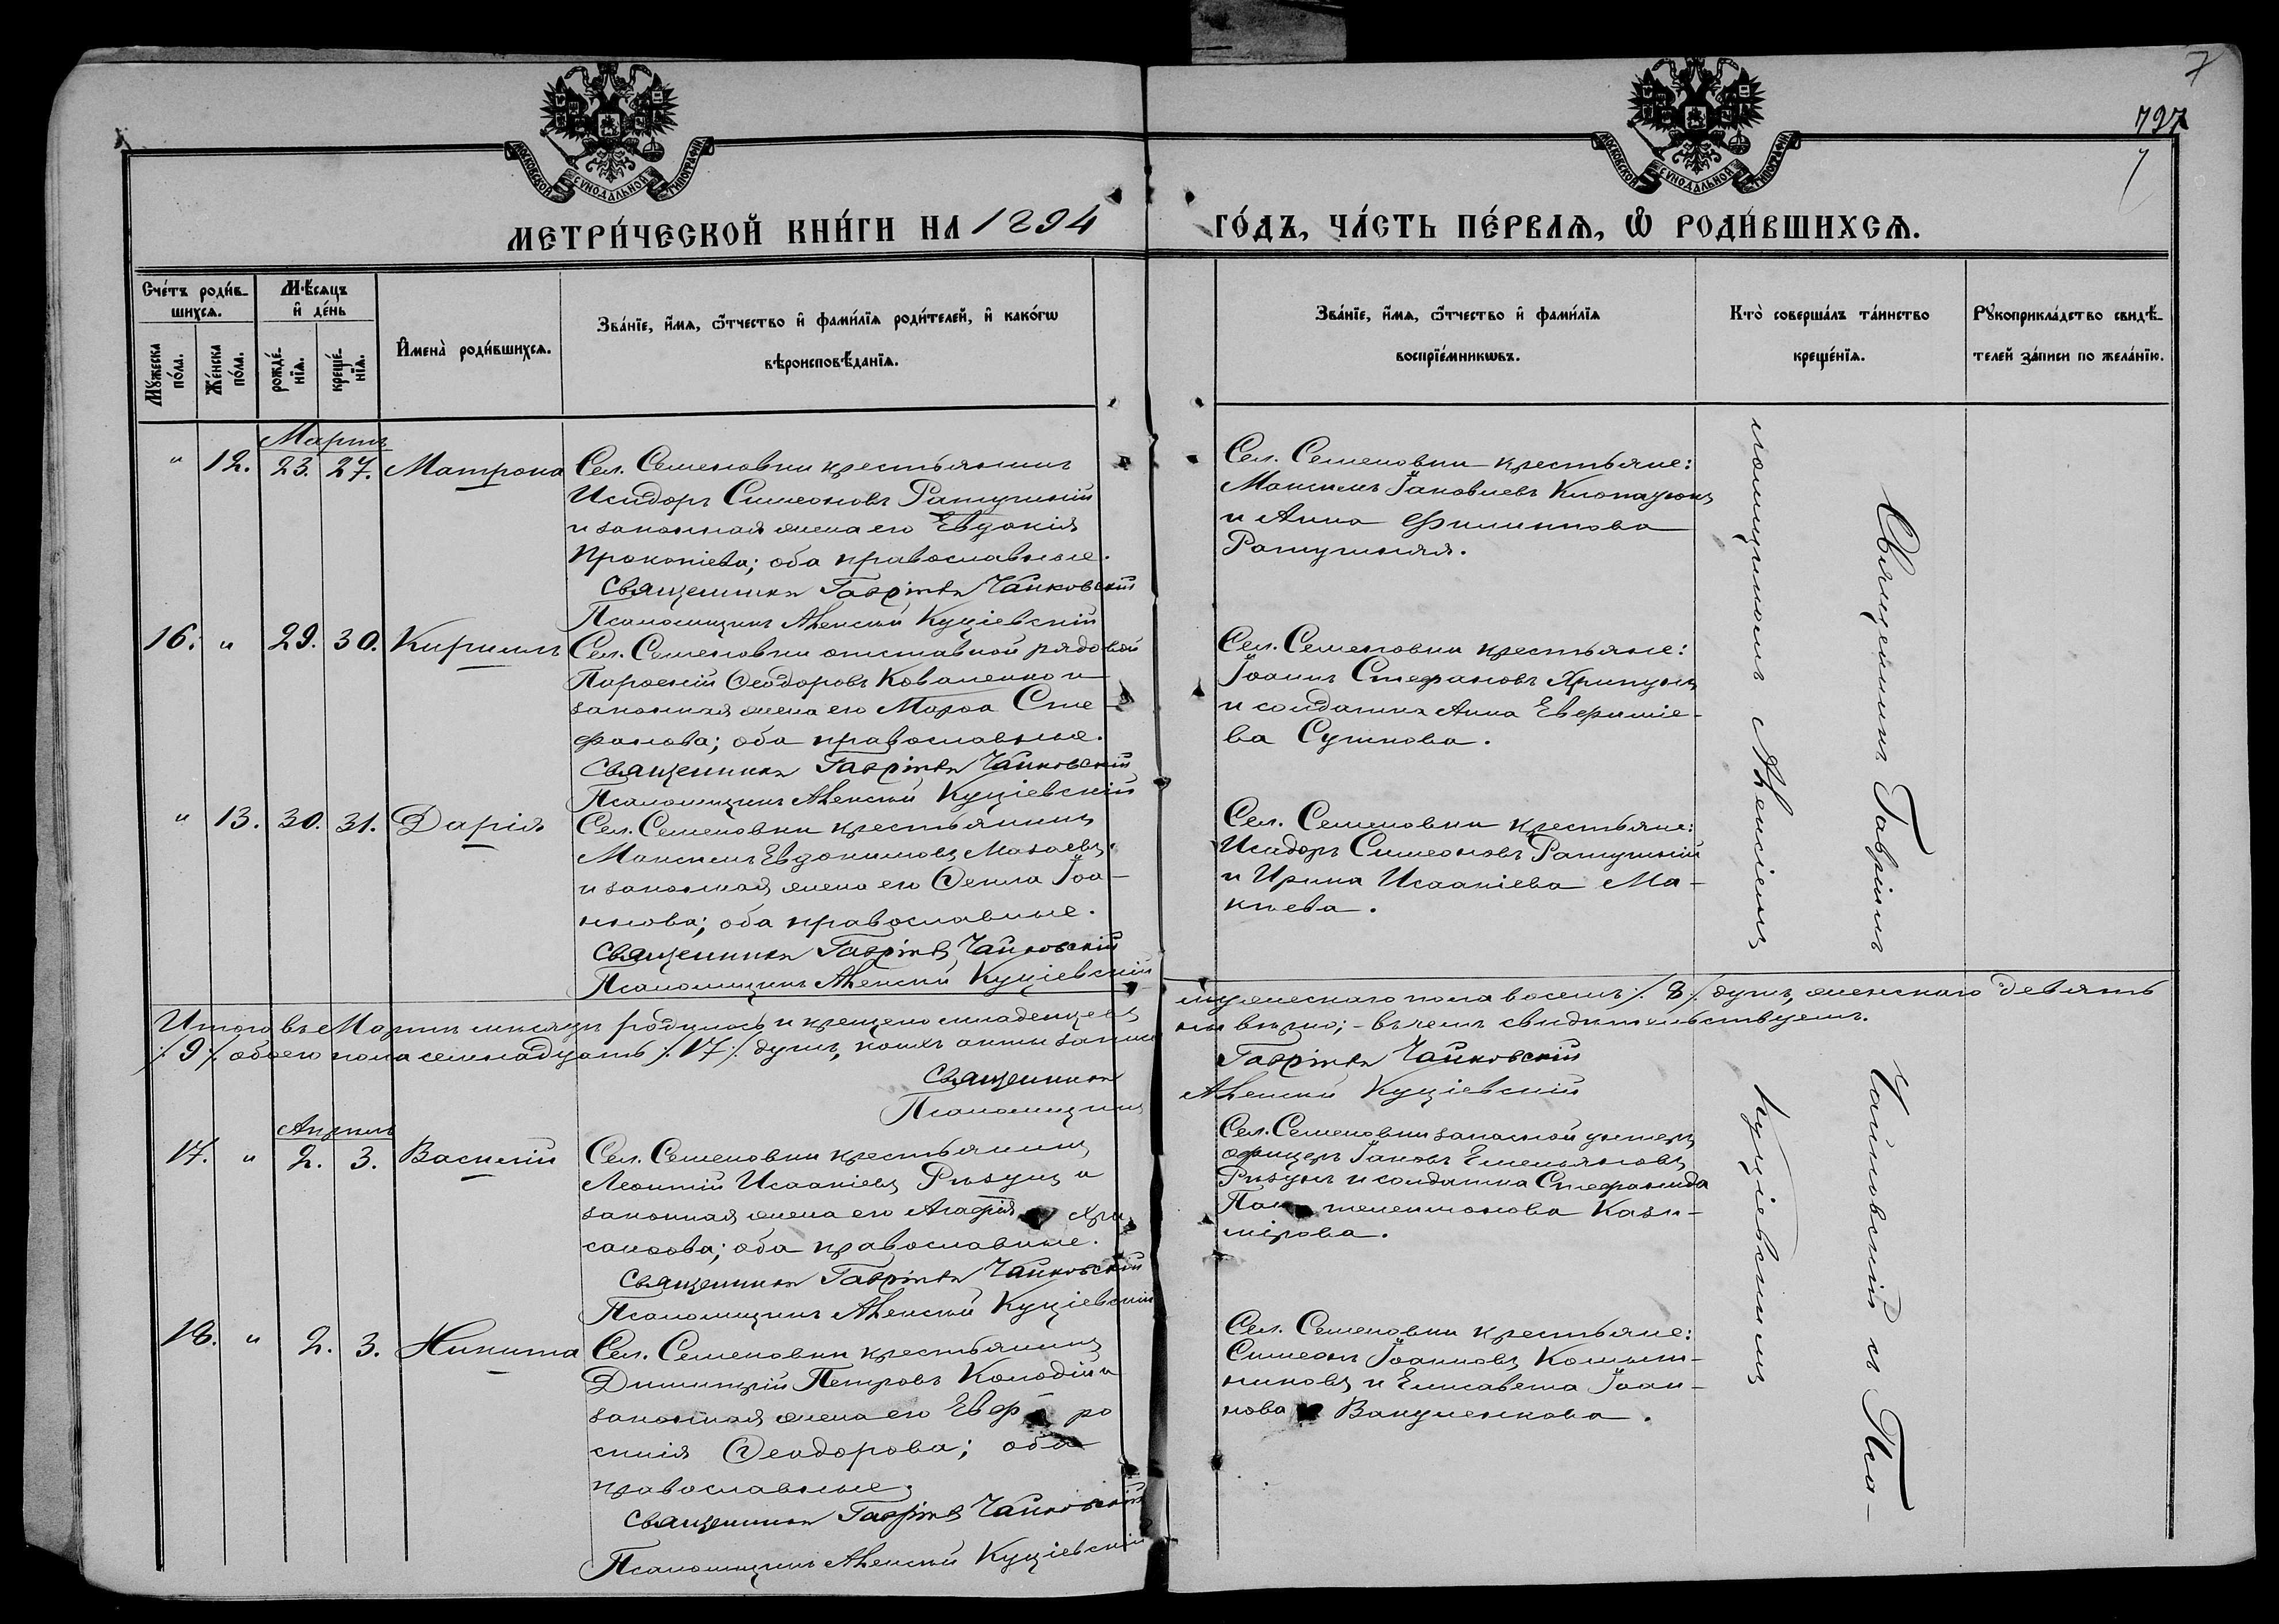 7
797
7
МОСКОВСКОЙ СѴНОДАЛЬНОЙ ТИПОГРАФІИ
МОСКОВСКОЙ СѴНОДАЛЬНОЙ ТИПОГРАФІИ
МЕТРИ́ЧЕСКОЙ КНИ́ГИ НА 1894 ГО́ДЪ, ЧА́СТЬ ПЕ́РВАѦ, Ѡ҆ РОДИ́ВШИХСѦ.
Сче́тъ роди́в-
шихсѧ.
Мꙋ́жеска по́ла.
Же́нска по́ла.
Мѣ́сѧцъ
и҆ де́нь
рожде́-
нїѧ.
креще́-
нїѧ.
И҆мена̀ роди́вшихсѧ.
Зва́нїе, и҆́мѧ, ѻ҆́тчество и҆ фами́лїѧ роди́телей, и҆ како́гѡ
вѣроисповѣ́данїѧ.
Зва́нїе, и҆́мѧ, ѻ҆́тчество и҆ фами́лїѧ
воспрїе́мникѡвъ.
Кто̀ соверша́лъ та́инство
креще́нїѧ.
Рꙋкоприкла́дство свидѣ́-
телей за́писи по жела́нїю.
Мартъ
" 12. 23. 27. Матрона
Сел. Семеновки крестьянинъ
Исидоръ Симеоновъ Ратушній
и законная жена его Евдокія
Прокопіева; оба православные.
Священникъ Гавріилъ Чайковскій
Псаломщикъ Алексій Куціевскій
Сел. Семеновки крестьяне:
Максимъ Іаковлевъ Клопатюкъ
и Анна Филиппова
Ратушняя.
16. " 29. 30. Кириллъ
Сел. Семеновки отставной рядовой
Парѳеній Ѳеодоровъ Коваленко и
законная жена его Марѳа Сте-
фанова; оба православные.
Священникъ Гавріилъ Чайковскій
Псаломщикъ Алексій Куціевскій
Сел. Семеновки крестьяне:
Іоаннъ Стефановъ Хрипунъ
и солдатка Анна Евфиміе-
ва Сушкова.
" 13. 30. 31. Дарія
Сел. Семеновки крестьянинъ
Максимъ Евдокимовъ Макаевъ
и законная жена его Ѳекла Іоа-
ннова; оба православные.
Священникъ Гавріилъ Чайковскій
Псаломщикъ Алексій Куціевскій
Сел. Семеновки крестьяне:
Исидоръ Симеоновъ Ратушній
и Ирина Исаакіева Ма-
кѣева.
Итого въ Мартѣ мѣсяцѣ родилось и крещено младенцевъ мужескаго пола восемь /8/ душъ, женскаго девять
/9/ обоего пола семнадцать /17/ душъ, коихъ акты записаны вѣрно; - въ чемъ свидѣтельствуемъ.
Священникъ Гавріилъ Чайковскій
Псаломщикъ Алексій Куціевскій
Апрель
17. " 2. 3. Василій
Сел. Семеновки крестьянинъ
Леонтій Исаакіевъ Рѣзунъ и
законная жена его Агафія Хри
санѳова; оба православные.
Священникъ Гавріилъ Чайковскій
Псаломщикъ Алексій Куціевскій
Сел. Семеновки запасной унтеръ
офицеръ Іаковъ Емельяновъ
Рѣзунъ и солдатка Стефанида
Пантелеимонова Кази-
мірова.
18. " 2. 3. Никита
Сел. Семеновки крестьянинъ
Димитрій Петровъ Колодій и
законная жена его Евф ро
синія Ѳеодорова; оба
православные.
Священникъ Гавріилъ Чайковскій
Псаломщикъ Алексій Куціевскій
Сел. Семеновки крестьяне:
Симеонъ Іоанновъ
и Елисавета Іоан-
нова Вакуленкова.
Священникъ Гавріилъ Чайковскій съ Пса-
ломщикомъ Алексіемъ Куціевскимъ